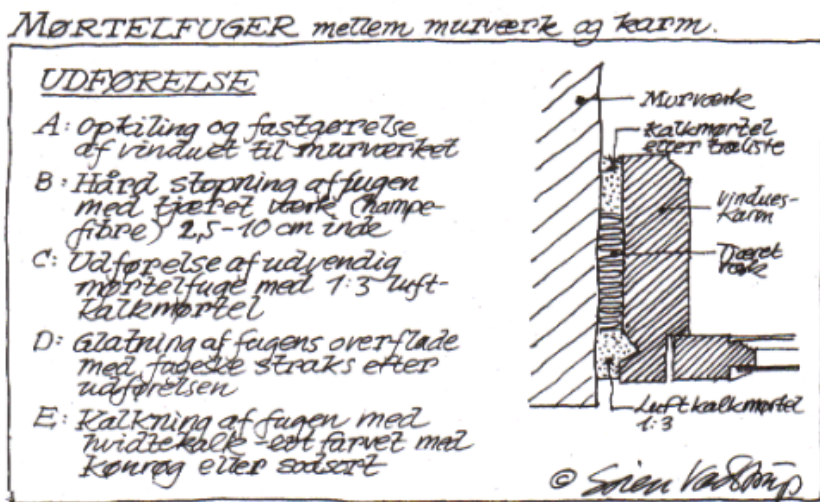 MØRTELFUGER mellem murværk og karm.
UDFØRELSE
A: Opkiling og fastgørelse
af vinduet til murværket
B: Hård stopning af fugen
med tjæret værk (hampe-
fibre) 2,5-10 cm inde
C: Udførelse af udvendig
mørtelfuge med 1:3 luft-
kalkmørtel
D: Glatning af fugens overflade
med fugeske straks efter
udførelsen
E: Kalkning af fugen med
hvidtekalk - evt farvet med
kønrøg eller sodsort
Murværk
Kalkmørtel
eller træliste
Vindues-
karm
Tjæret
værk
Luftkalkmørtel
1:3
© Søren Vadstrup